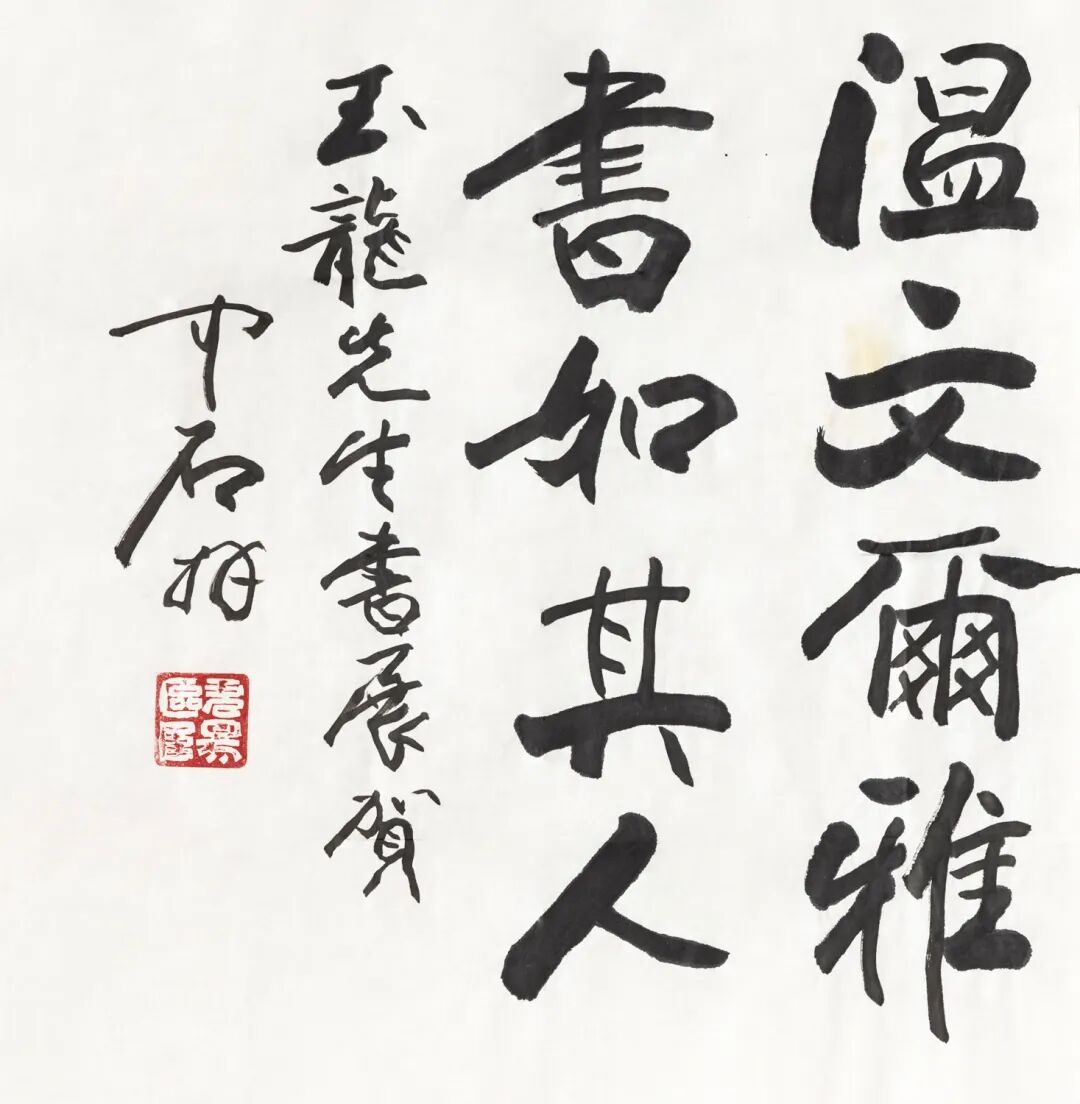 温文爾雅
書如其人
玉龍先生書展賀
中石拜